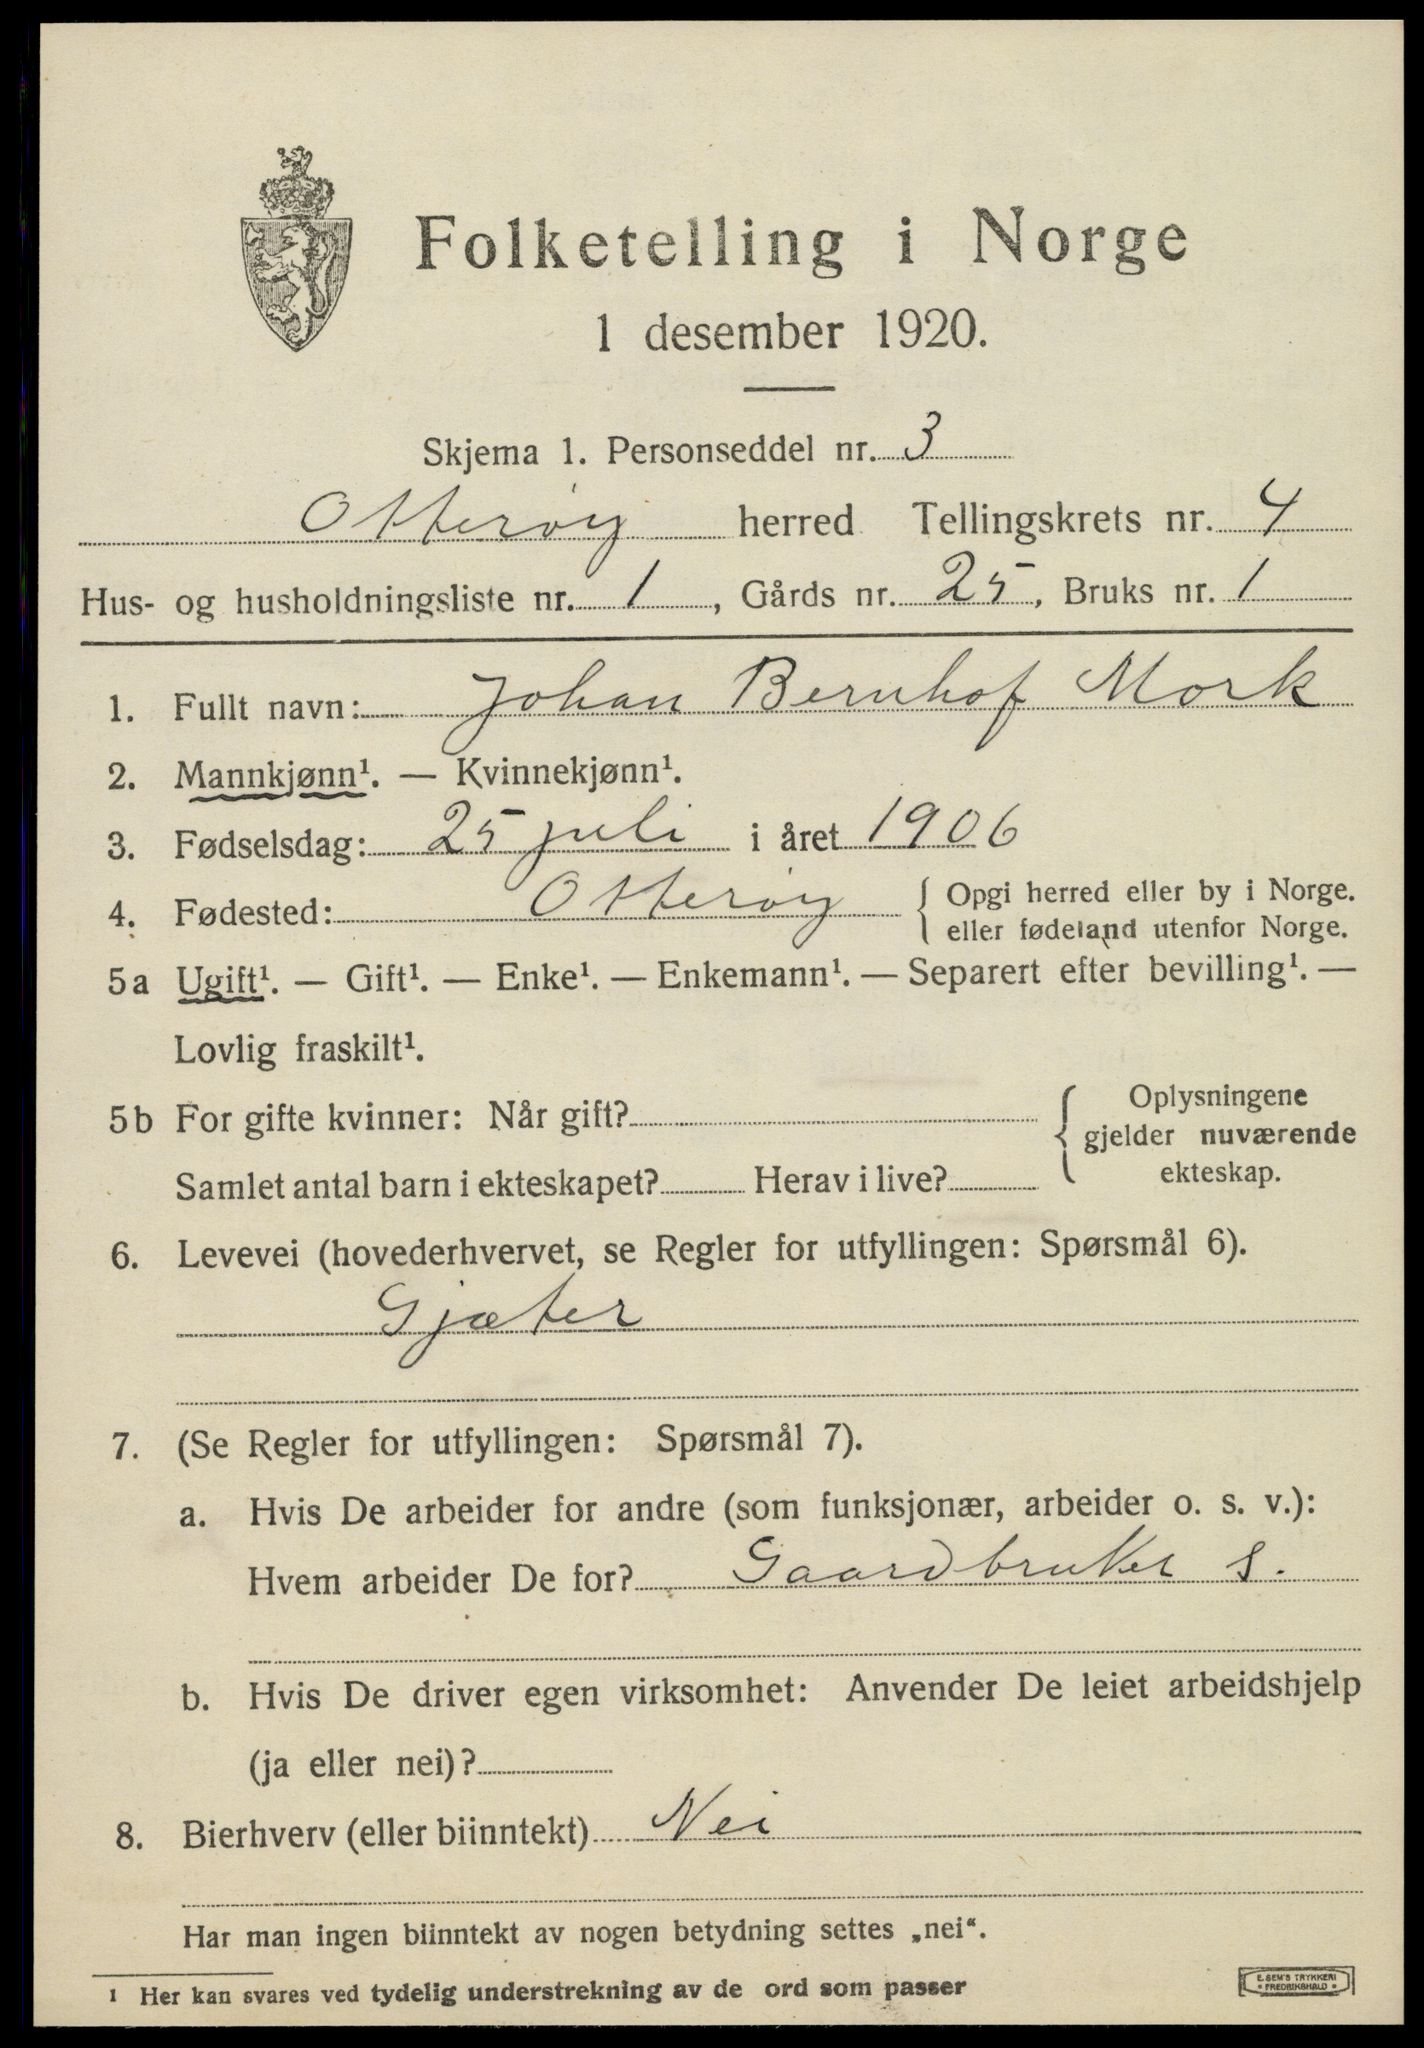 Folketelling i Norge
1 desember 1920.
Skjema 1. Personseddel nr. 3
Otterøy herred Tellingskrets nr. 4
Hus- og husholdningsliste nr. 1, Gårds nr. 25, Bruks nr. 1
1. Fullt navn: Johan Bernhof Mork
2. Mannkjønn¹. — Kvinnekjønn¹.
3. Fødselsdag: 25 juli i året 1906
4. Fødested: Otterøy { Opgi herred eller by i Norge.
eller fødeland utenfor Norge.
5a Ugift¹. — Gift¹. — Enke¹. — Enkemann¹. — Separert efter bevilling¹. —
Lovlig fraskilt¹.
5b For gifte kvinner: Når gift?
Samlet antal barn i ekteskapet? Herav i live?
{ Oplysningene
gjelder nuværende
ekteskap.
6. Levevei (hovederhvervet, se Regler for utfyllingen: Spørsmål 6).
Gjæter
7. (Se Regler for utfyllingen: Spørsmål 7).
a. Hvis De arbeider for andre (som funksjonær, arbeider o. s. v.):
Hvem arbeider De for? Gaardbruker S.
b. Hvis De driver egen virksomhet: Anvender De leiet arbeidshjelp
(ja eller nei)?
8. Bierhverv (eller biinntekt) Nei
Har man ingen biinntekt av nogen betydning settes „nei“.
1 Her kan svares ved tydelig understrekning av de ord som passer
E. SEM'S TRYKKERI
• FREDRIKSHALD •